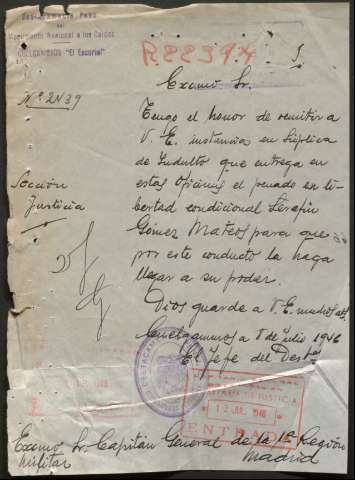 Destacamento Penal
del
Monumento Nacional a los Caídos
CUELGAMUROS "El Escorial"
R22394
Excmo Sr.
Nº 2439
Tengo el honor de remitir a
V. E. instancia en súplica
de Indulto que entrega en
estas oficinas el penado en li-
bertad condicional Serafín
Sección
Justicia
Gómez Mateos para que
por este conducto la haga
llegar a su poder.
Dios guarde a V. E. muchos
Cuelgamuros a 8 de Julio 1946
El Jefe del Dest
DE JUSTICIA
12 JUL 1946
ENTRADA
Excmo Sr. Capitán General de la 1ª Región
Militar
Madrid